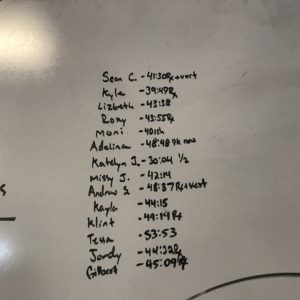 Sean C. - 41:30Rx+vest
Kyla - 39:49Rx
Lizbeth - 43:38
Roxy - 43:55Rx
Moni - 40ish
Adelina - 48:48 9k row
Katelyn J. - 30:04 1/2
Missy J. - 42:14
Andrew S. - 48:37Rx+vest
Kayla - 44:15
Klint - 49:49Rx
Tessa - 53:53
Jordy - 44:22Rx
Gilbert - 45:09Rx